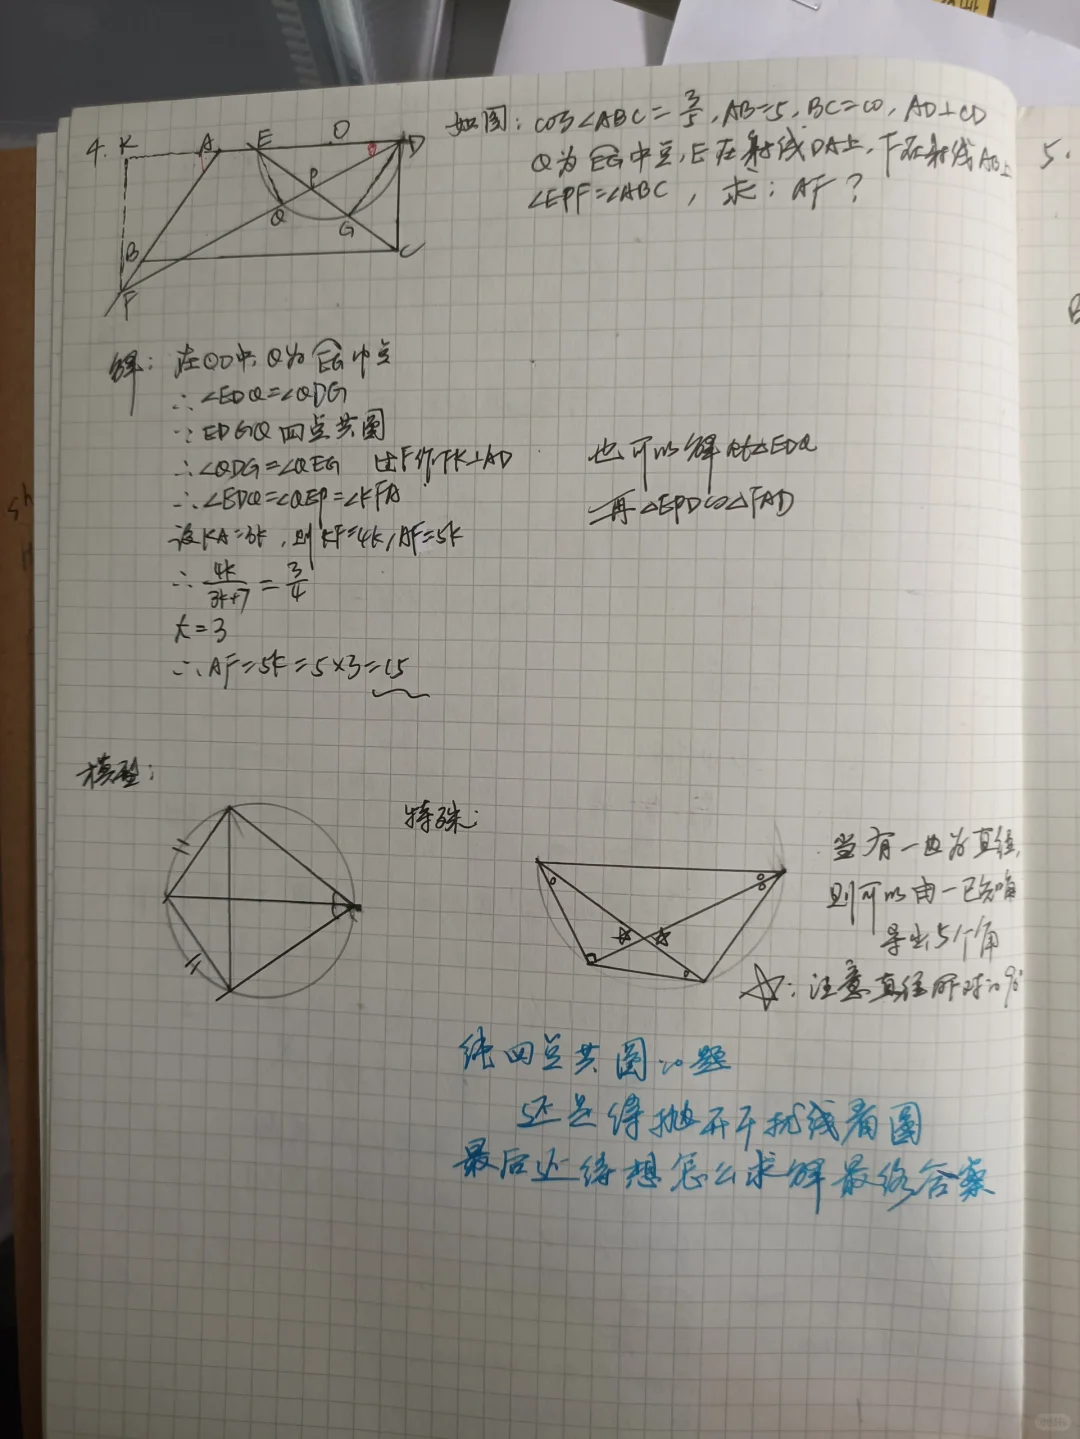 4. K A E O D
P
Q G
B C
F
如图: cos∠ABC=3/5, AB=5, BC=10, AD⊥CD
Q为EG中点, E在射线DA上, F在射线AB上
∠EPF=∠ABC, 求: AF?
5.
解: 在⊙O中, Q为EG中点
∴∠EDQ=∠QDG
∵EDGQ四点共圆
∴∠QDG=∠QEG 过F作FK⊥AD
∴∠EDQ=∠QEP=∠KFA
设KA=3k, 则KF=4k, AF=5k
∴4k/3k+7=3/4
k=3
∴AF=5k=5×3=15
也可以解Rt△EDQ
再△EPD∽△FAD
模型:
特殊:
当有一边为直径,
则可以由一已知角
导出5个角
☆: 注意直径所对的90°
纯四点共圆的题
还是得抛开干扰线看图
最后还得想怎么求解最终答案